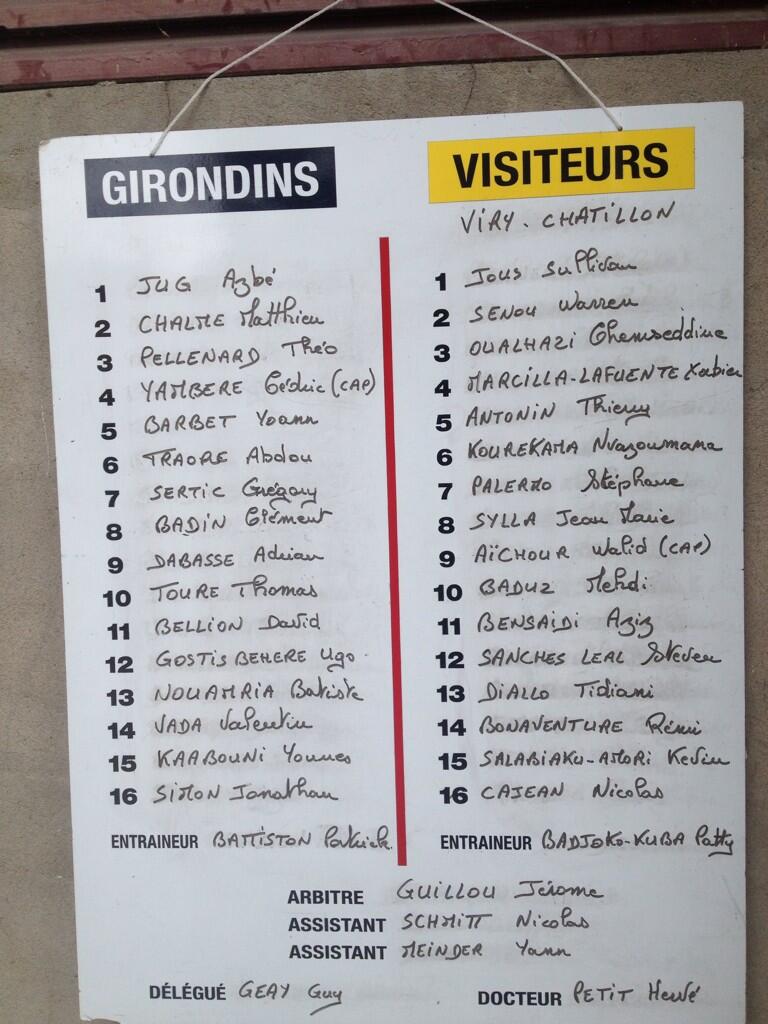 GIRONDINS
1 JUG Azbé
2 CHALME Matthieu
3 PELLENARD Théo
4 YAMBERE Cédric (CAP)
5 BARBET Yoann
6 TRAORE Abdou
7 SERTIC Grégory
8 BADIN Clément
9 DABASSE Adrian
10 TOURE Thomas
11 BELLION David
12 GOSTISBEHERE Ugo
13 NOUAMRIA Batiste
14 VADA Valentin
15 KAABOUNI Younes
16 SIMON Jonathan
ENTRAINEUR BATTISTON Patrick
VISITEURS
VIRY-CHATILLON
1 JOUS Sullivan
2 SENOU Warren
3 OUALHAZI Chemseddine
4 MARCILLA-LAFUENTE Xabier
5 ANTONIN Thierry
6 KOUREKAMA Nvazoumana
7 PALERMO Stéphane
8 SYLLA Jean Marie
9 AÏCHOUR Walid (CAP)
10 BADUZ Mehdi
11 BENSAIDI Aziz
12 SANCHES LEAL Steven
13 DIALLO Tidiani
14 BONAVENTURE Rémi
15 SALABIAKU-AMORI Kevin
16 CAJEAN Nicolas
ENTRAINEUR BADJOKO-KUBA Patty
ARBITRE GUILLOU Jérome
ASSISTANT SCHMITT Nicolas
ASSISTANT MEINDER Yann
DÉLÉGUÉ GEAY Guy
DOCTEUR PETIT Hervé